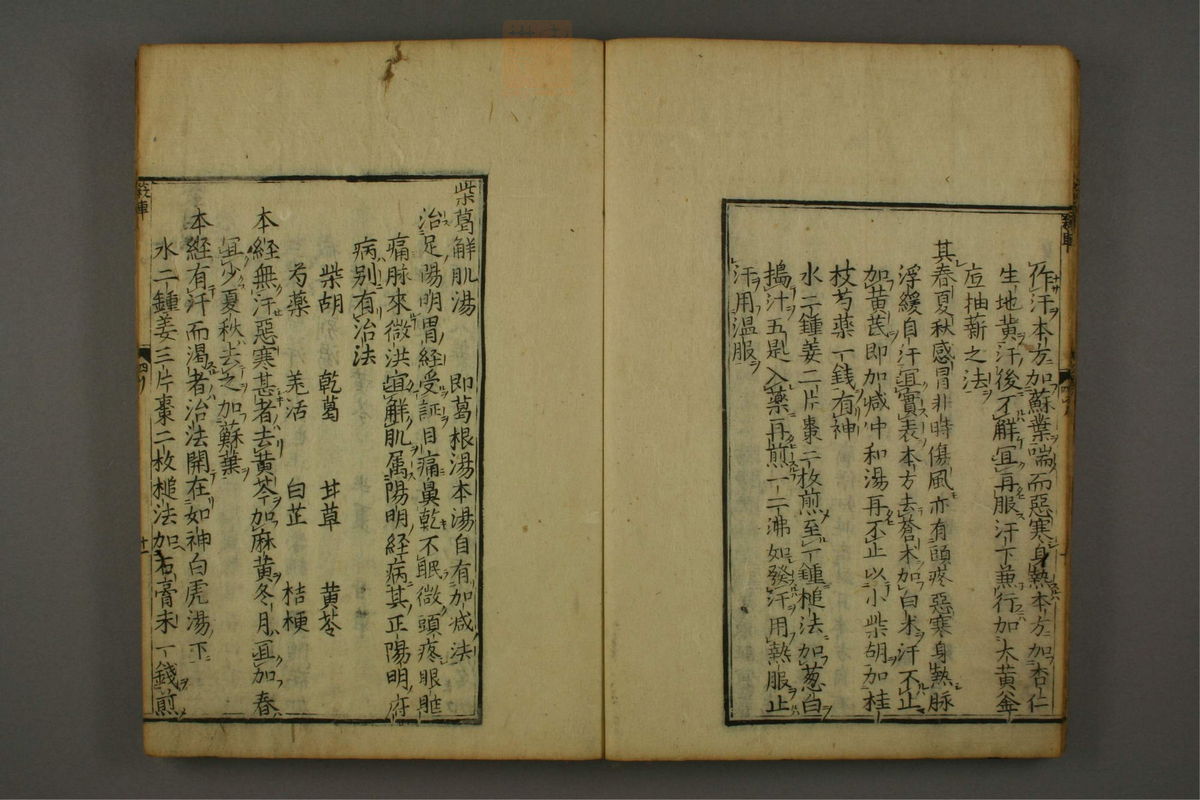 作汗本方加蘇葉喘而惡寒身熱本方加杏仁
生地黄汗後不觧宜再服汗下兼行加大黄釜
底抽薪之法
其春夏秋感冒非時傷風亦有頭疼惡寒身熱脉
浮緩自汗宜實表本方去蒼术加白术汗不止
加黄芪即加减冲和湯再不止以小柴胡加桂
枝芍藥一錢有神
水二鍾姜二片棗二枚煎至一鍾槌法加葱白
搗汁五匙入藥再煎一二沸如發汗用熱服止
汗用温服
柴葛觧肌湯 即葛根湯本湯自有加减法
治足陽明胃経受証目痛鼻乾不眠微頭疼眼眶
痛脉來微洪宜觧肌属陽明経病其正陽明府
病别有治法
柴胡 乾葛 甘草 黄芩
芍藥 羗活 白芷 桔梗
本経無汗惡寒甚者去黄芩加麻黄冬月宜加春
宜少夏秋去之加蘇葉
本経有汗而渴者治法開在如神白虎湯下
水二鍾姜三片棗二枚槌法加石膏末一錢煎